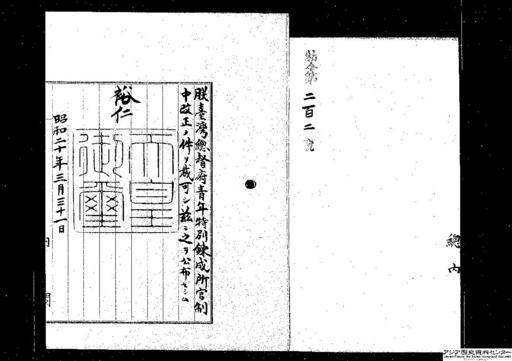 勅令第二百二號
總内
朕臺灣總督府青年特別錬成所官制
中改正ノ件ヲ裁可シ茲ニ之ヲ公布セシム
裕仁
天皇
御璽
昭和二十年三月三十一日
内閣
アジア歴史資料センター